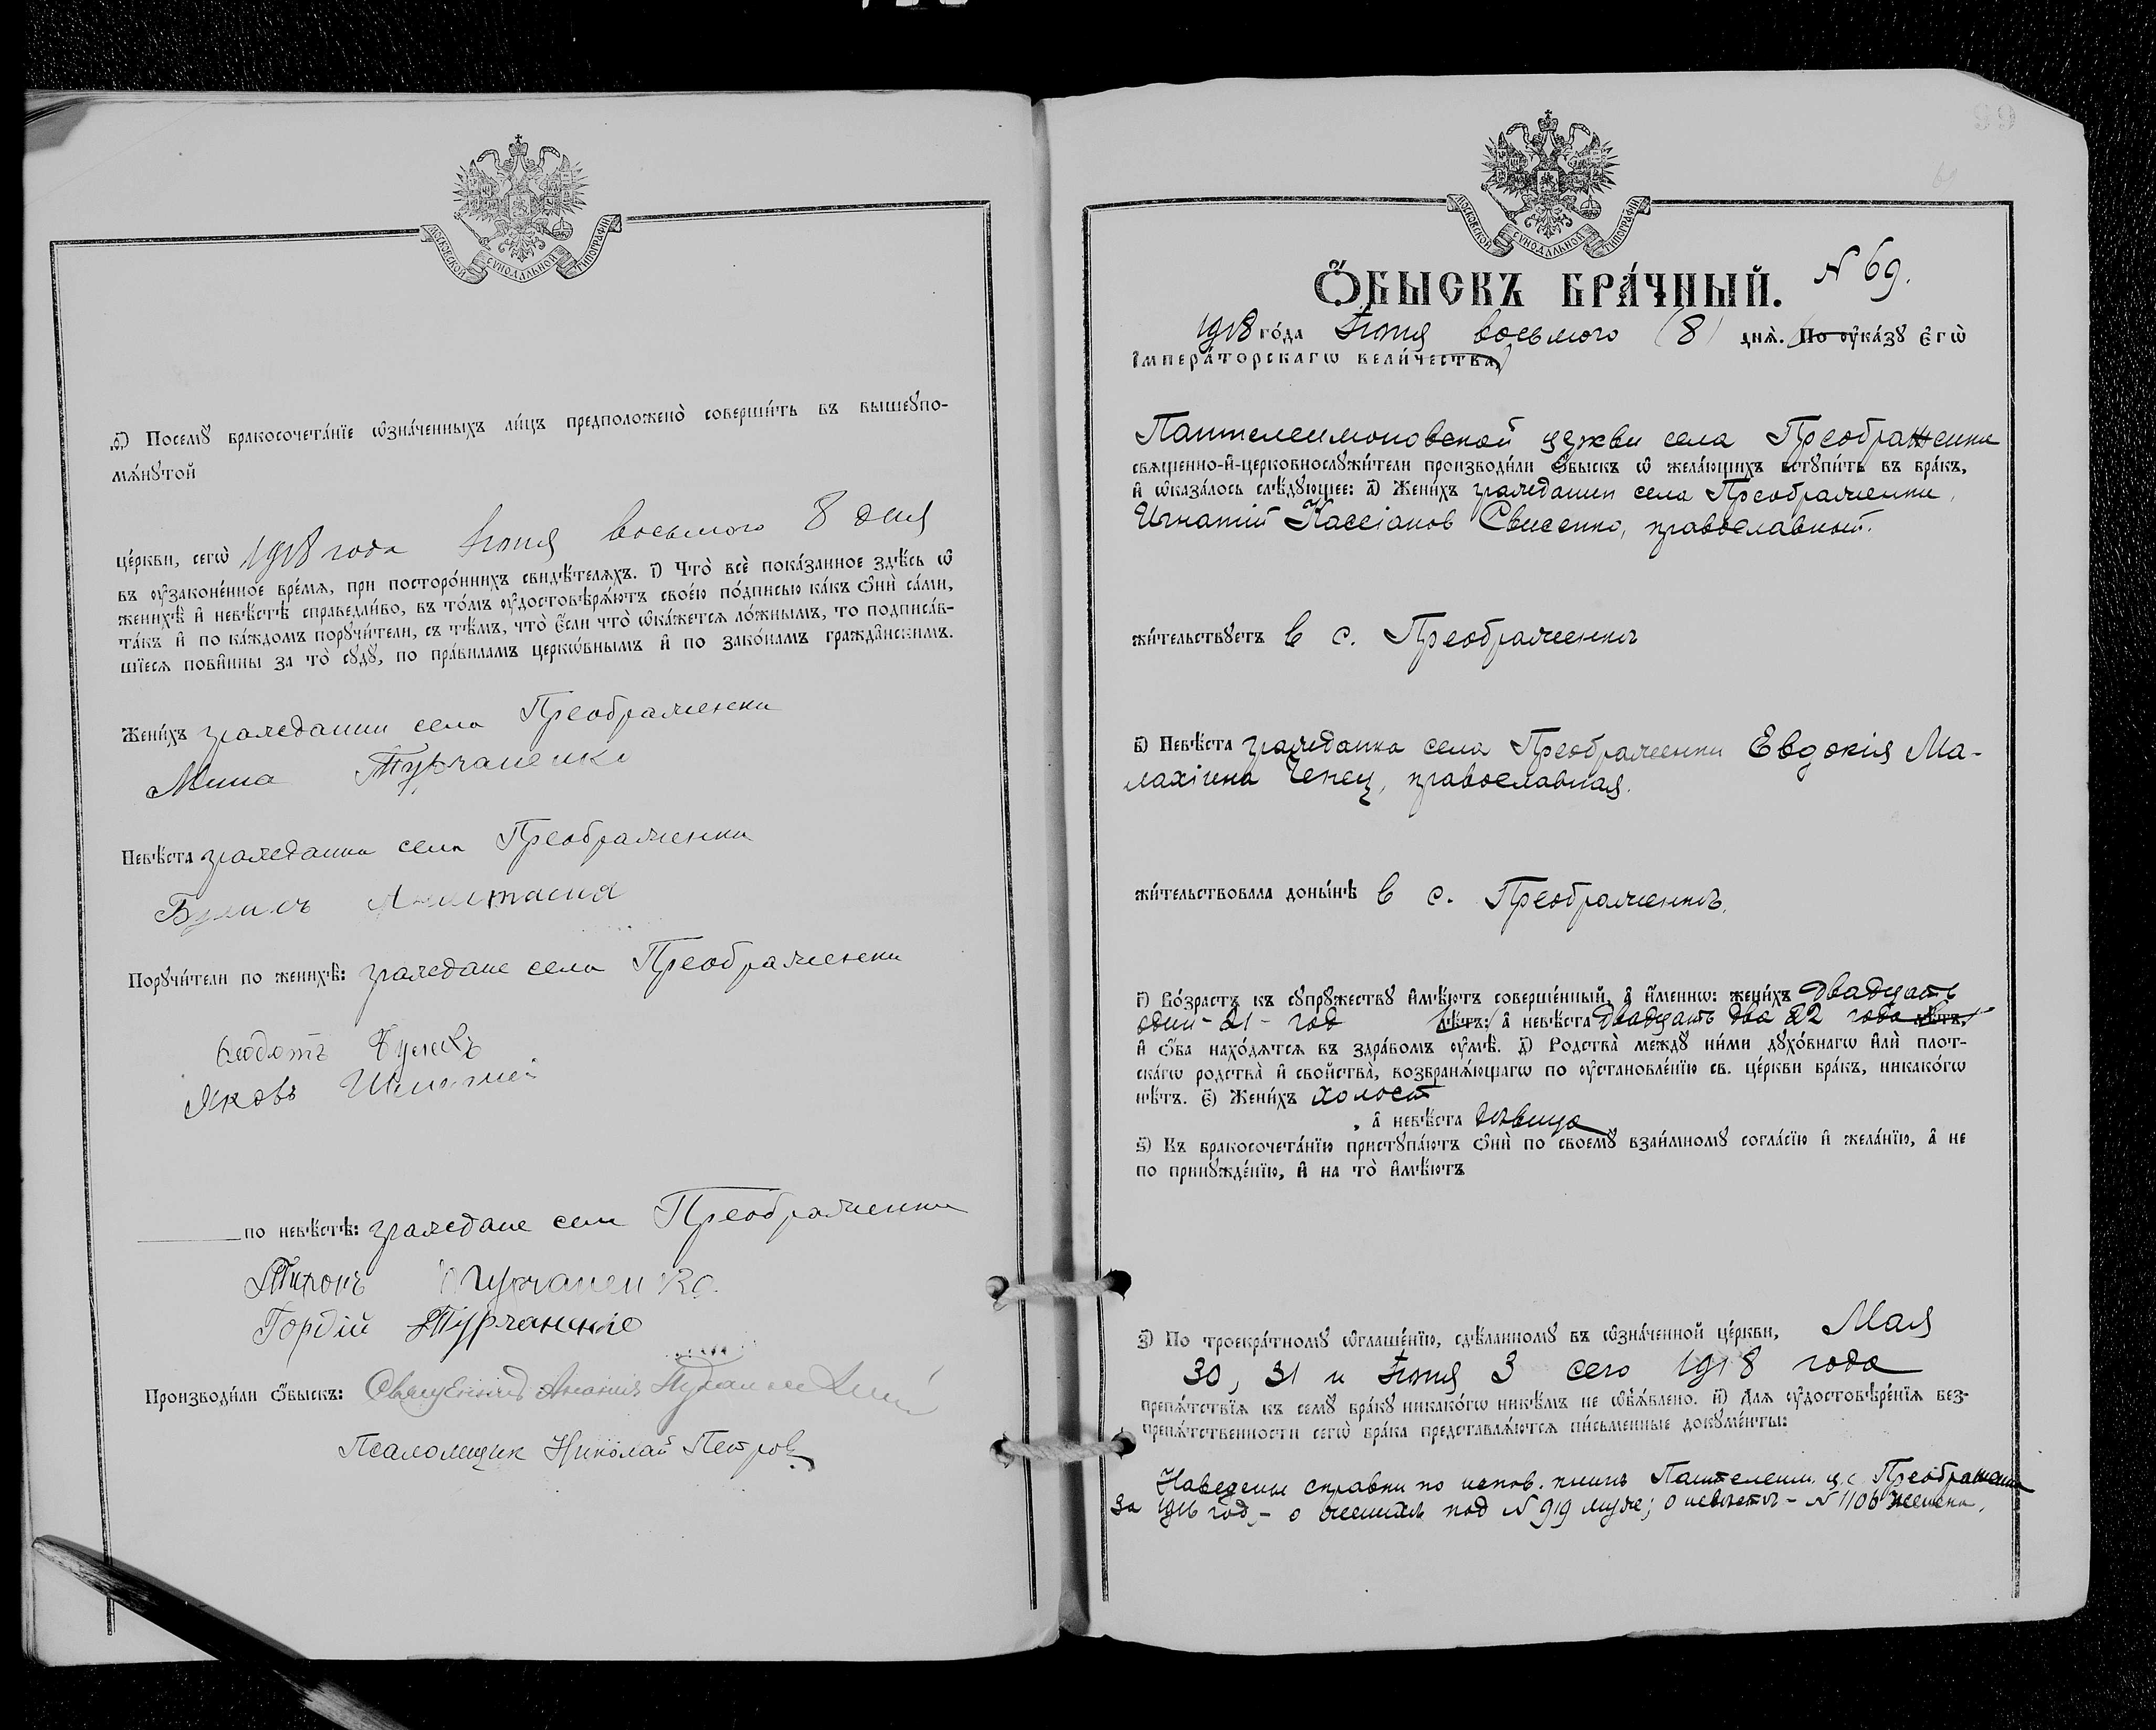 МОСКОВСКОЙ СѴНОДАЛЬНОЙ ТИПОГРАФІИ
ѳ҃) Посемꙋ̀ бракосочета́нїе ѡ҆зна́ченныхъ ли́цъ предположено̀ соверши́ть въ вышеꙋпо-
мѧ́нꙋтой
це́ркви, сегѡ̀ 1918 года Іюня восьмого 8 дня
въ ᲂу҆законе́нное вре́мѧ, при посторо́ннихъ свидѣ́телѧхъ. і҃) Что̀ всѐ пока́занное здѣ́сь ѡ҆
женихѣ̀ и҆ невѣ́стѣ справедли́во, въ то́мъ ᲂу҆достовѣрѧ́ютъ свое́ю по́дписью ка́къ ѻ҆нѝ са́ми,
та́къ и҆ по ка́ждомъ порꙋчи́тели, съ тѣ́мъ, что̀ є҆́сли что̀ ѡ҆ка́жетсѧ ло́жнымъ, то подписа́в-
шїесѧ пови́нны за то̀ сꙋдꙋ̀, по пра́виламъ церко́внымъ и҆ по зако́намъ гражда́нскимъ.
Жени́хъ гражданин села Преображенки
Мина Турчаненко
Невѣ́ста гражданка села Преображенки
Анастасия
Порꙋчи́тели по женихѣ̀: граждане села Преображенки
Яковъ
по невѣ́стѣ: граждане села Преображенки
Турчаненко
Гордій Турчаненко
Производи́ли ѻ҆́быскъ: Священникъ
Псаломщик Николай Петров
МОСКОВСКОЙ СѴНОДАЛЬНОЙ ТИПОГРАФІИ
Ѻ҆́БЫСКЪ БРА́ЧНЫЙ. N 69.
1918 го́да Іюня восьмого (8) днѧ̀. (По ᲂу҆ка́зꙋ є҆гѡ̀
і҆мпера́торскагѡ вели́чества)
Пантелеимоновской церкви села Преображенки
свѧще́нно-и҆-церковнослꙋжи́тели производи́ли ѻ҆́быскъ ѡ҆ жела́ющихъ встꙋпи́ть въ бра́къ,
и҆ ѡ҆каза́лось слѣ́дꙋющее: а҃) Жени́хъ гражданин села Преображенки,
Игнатій Кассіанов Свисенко, православный.
жи́тельствꙋетъ в с. Преображенкѣ
в҃) Невѣ́ста гражданка села Преображенки Евдокія Ма-
лахіина Ченец, православная.
жи́тельствовала доны́нѣ в с. Преображенкѣ.
г҃) Во́зрастъ къ сꙋпрꙋ́жествꙋ и҆мѣ́ютъ соверше́нный, а҆ и҆́менно: жени́хъ двадцать
один - 21 - год лѣ́тъ: а҆ невѣ́ста двадцать два 22 года лѣ́тъ,
и҆ ѻ҆́ба нахо́дѧтсѧ въ здра́вомъ ᲂу҆мѣ̀. д҃) Родства̀ междꙋ̀ ни́ми дꙋхо́внагѡ и҆лѝ плот-
ска́гѡ родства̀ и҆ сво́йства̀, возбранѧ́ющагѡ по ᲂу҆становле́нїю св. це́ркви бра́къ, никако́гѡ
нѣ́тъ. є҃) Жени́хъ холост
, а҆ невѣ́ста дѣвица
ѕ҃) Къ бракосочета́нїю пристꙋпа́ютъ ѻ҆нѝ по своемꙋ̀ взаи́мномꙋ согла́сїю и҆ жела́нїю, а҆ не
по принꙋжде́нїю, и҆ на то̀ и҆мѣ́ютъ
з҃) По троекра́тномꙋ ѡ҆глаше́нїю, сдѣ́ланномꙋ въ ѡ҆зна́ченной це́ркви, Мая
30, 31 и Іюня 3 сего 1918 года
препѧ́тствїѧ къ семꙋ̀ бра́кꙋ никако́гѡ никѣ́мъ не ѡ҆б̾ѧ́влено. и҃) Длѧ ᲂу҆достовѣре́нїѧ без-
препѧ́тственности сегѡ̀ бра́ка представлѧ́ютсѧ пи́сьменные докꙋме́нты:
Наведены справки по испов. книгѣ Пантелеим. ц. с. Преображенки
за 1916 год, - о женихѣ под N 919 мужс; о невѣстѣ - N 1106 женска.